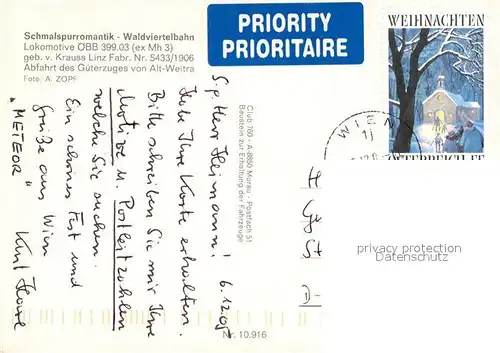 Schmalspurromantik - Waldviertelbahn
Lokomotive ÖBB 399.03 (ex Mh 3)
geb. v. Krauss Linz Fabr. Nr. 5433/1906
Abfahrt des Güterzuges von Alt-Weitra
Foto: A. ZOPF
PRIORITY
PRIORITAIRE
WEIHNACHTEN
ÖSTERREICH
WIEN
Club 760 - A-8850 Murau - Postfach 51
Baustein zur Erhaltung der Fahrzeuge
6.12.05
Herr Heimann!
Habe Ihre Karte erhalten.
Bitte schreiben Sie mir Ihre
Motive u. Postleitzahlen
welche Sie suchen.
Ein schönes Fest und
Grüße aus Wien
"METEOR" Karl
D-
privacy protection
Datenschutz
Nr. 10.916